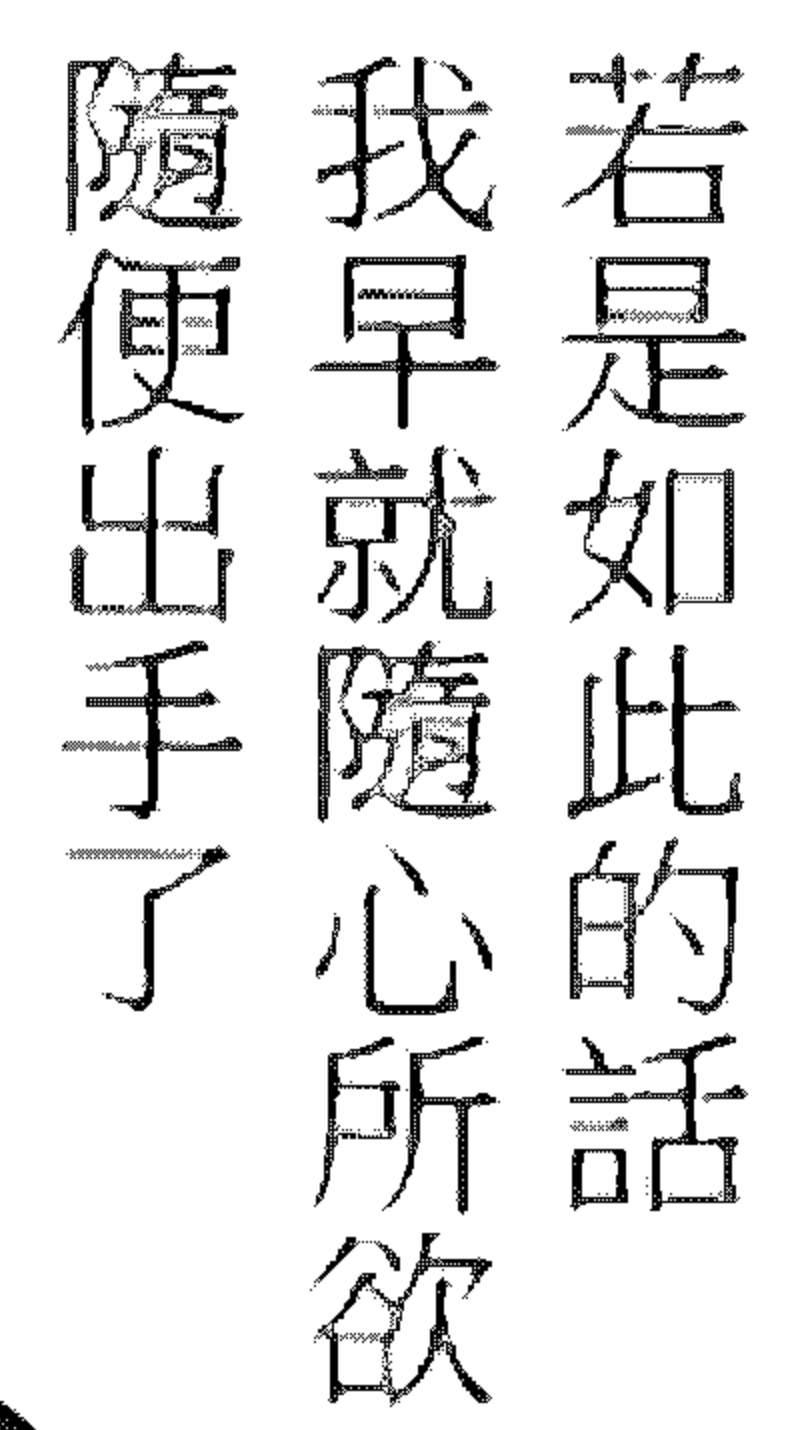 若是如此的話
我早就隨心所欲
隨便出手了